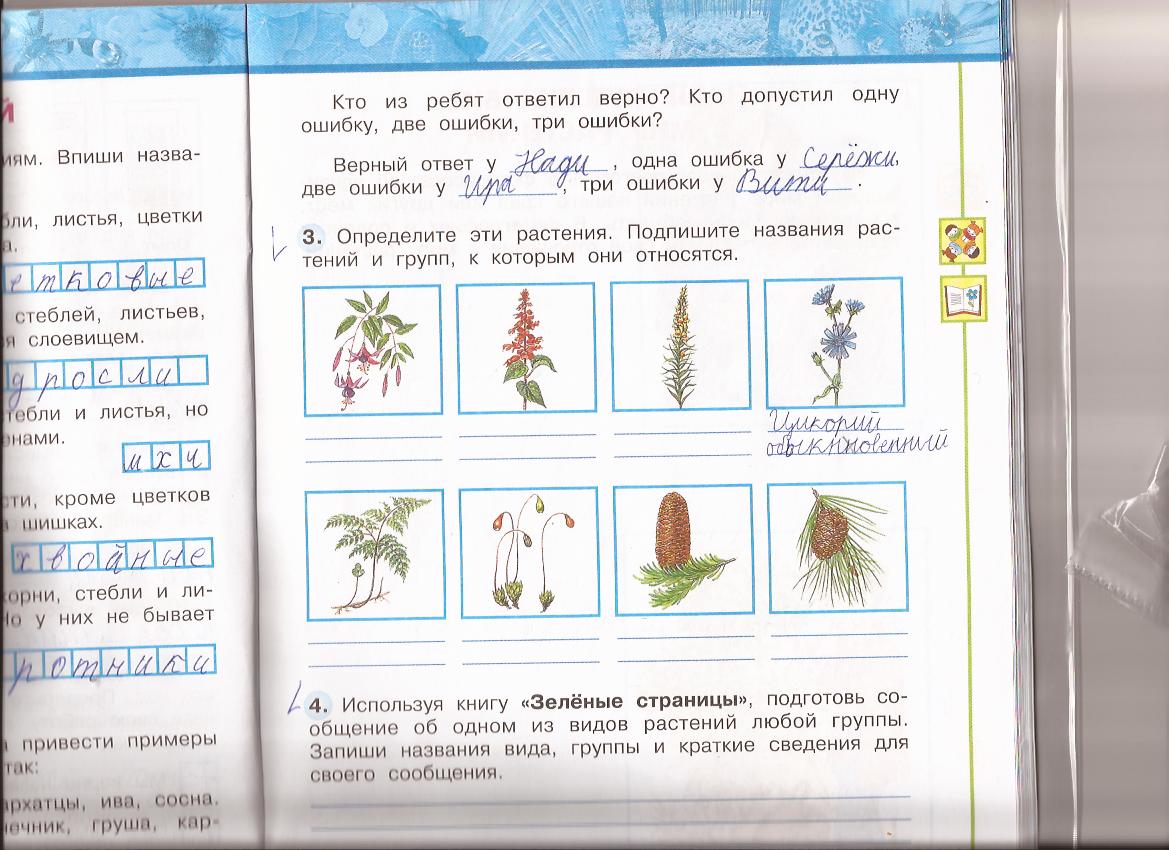 й
иям. Впиши назва-
бли, листья, цветки
а.
етковые
стеблей, листьев,
я слоевищем.
дросли
тебли и листья, но
енами.
мхи
сти, кроме цветков
шишках.
хвойные
корни, стебли и ли-
Но у них не бывает
ротники
привести примеры
так:
архатцы, ива, сосна.
нечник, груша, кар-
Кто из ребят ответил верно? Кто допустил одну
ошибку, две ошибки, три ошибки?
Верный ответ у Нади, одна ошибка у Серёжи,
две ошибки у Ира, три ошибки у Вити.
3. Определите эти растения. Подпишите названия рас-
тений и групп, к которым они относятся.
Цикорий
обыкновенный
4. Используя книгу «Зелёные страницы», подготовь со-
общение об одном из видов растений любой группы.
Запиши названия вида, группы и краткие сведения для
своего сообщения.